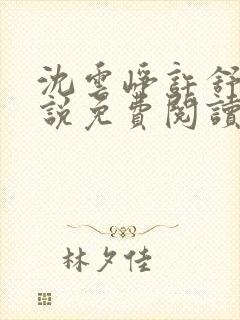 沈雲崢許舒
說免費閱讀
林夕佳